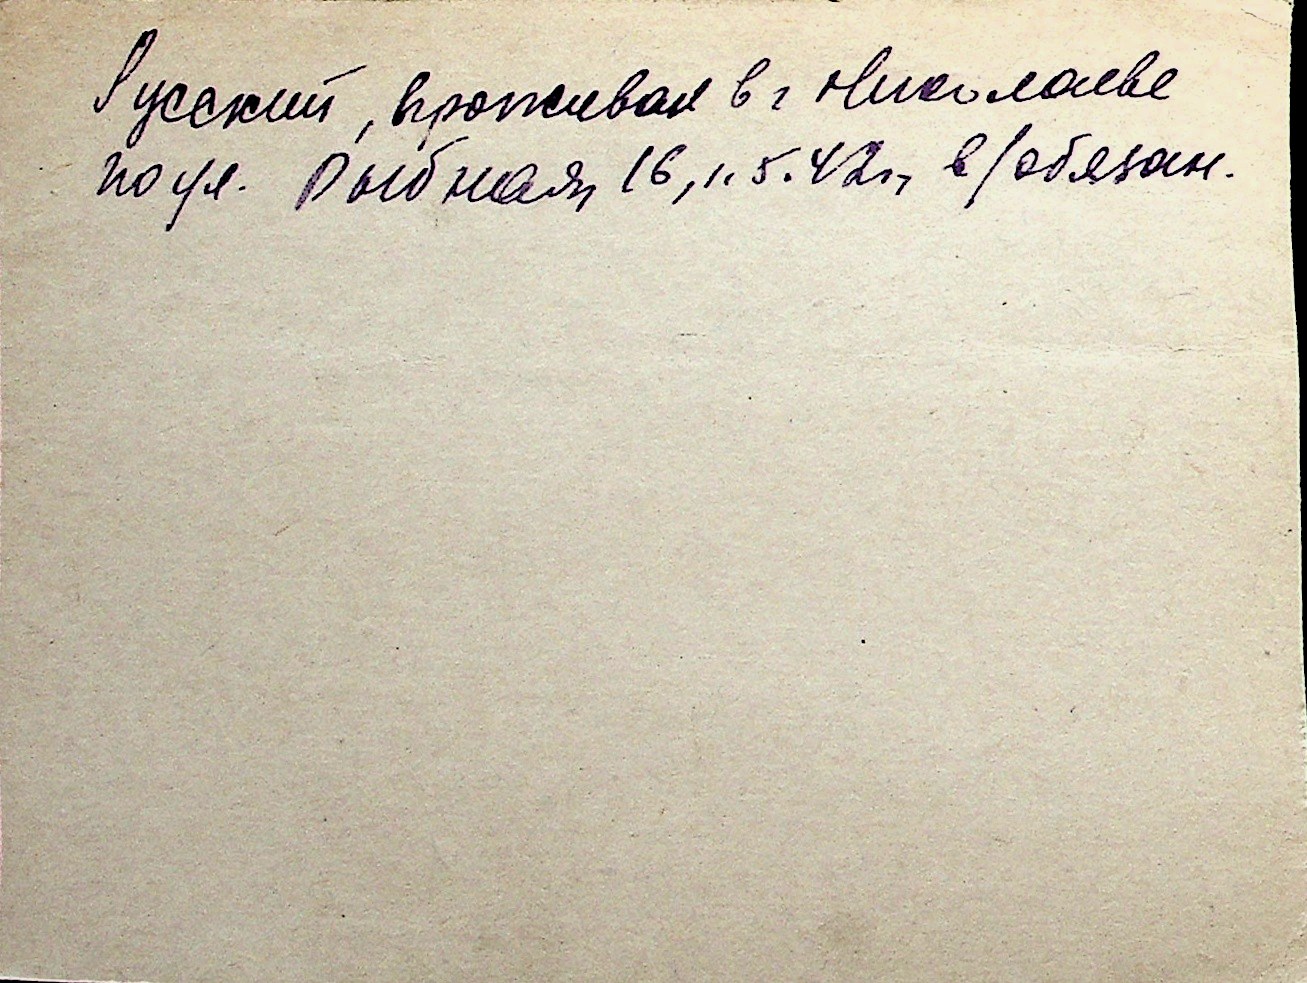 Русский, проживал в г Николаеве
по ул. Рыбная, 16, 1.5.42г., в/обязан.